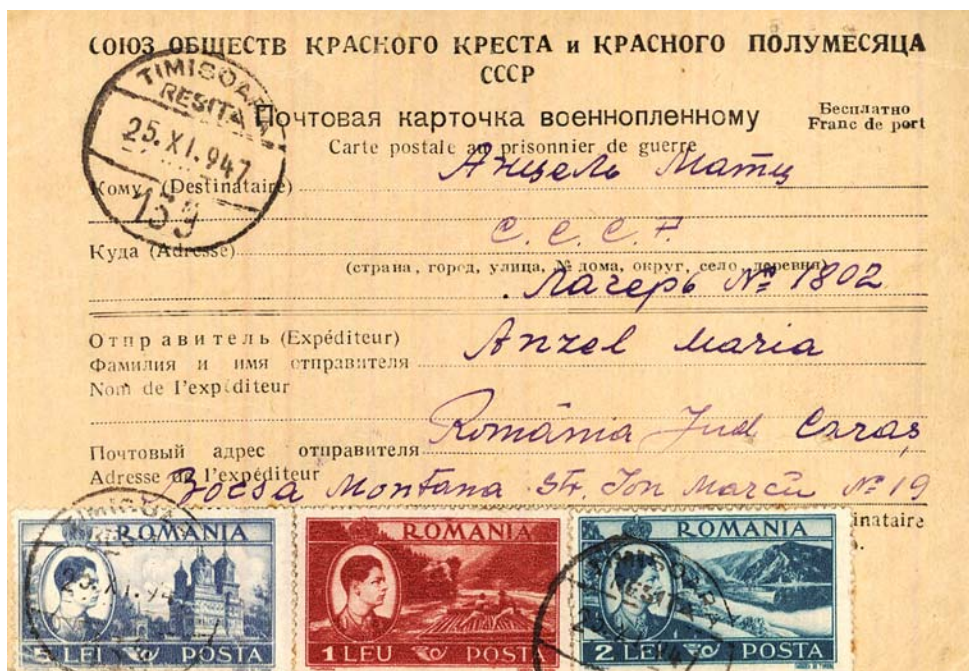 СОЮЗ ОБЩЕСТВ КРАСНОГО КРЕСТА и КРАСНОГО ПОЛУМЕСЯЦА
СССР
TIMISOARA
RESITA
25.XI.947
159
Почтовая карточка военнопленному
Carte postale au prisonnier de guerre
Бесплатно
Franc de port
Кому (Destinataire) Анцель Матц
Куда (Adresse) С. С. С. Р.
(страна, город, улица, № дома, округ, село, деревня)
Лагерь № 1802
Отправитель (Expéditeur)
Фамилия и имя отправителя Anzel Maria
Nom de l'expéditeur
Почтовый адрес отправителя România Jud Caraș
Adresse de l'expéditeur Bocsa Montana Str. Ion Marcu № 19
inataire
ROMANIA
5 LEI POSTA
ROMANIA
1 LEU POSTA
ROMANIA
2 LEI POSTA